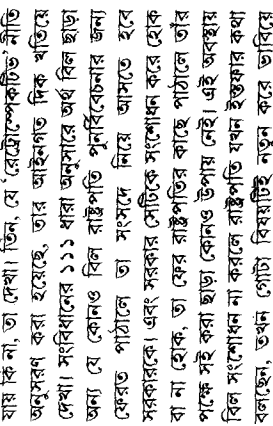 যায় কি না, তা দেখা। তিন, যে 'রেট্রোস্পেকটিভ' নীতি
অনুসরণ করা হয়েছে, তার আইনগত দিক খতিয়ে
দেখা। সংবিধানের ১১১ ধারা অনুসারে অর্থ বিল ছাড়া
অন্য যে কোনও বিল রাষ্ট্রপতি পুনর্বিবেচনার জন্য
ফেরত পাঠালে তা সংসদে নিয়ে আসতে হবে
সরকারকে। এবং সরকার সেটিকে সংশোধন করে হোক
বা না হোক, তা ফের রাষ্ট্রপতির কাছে পাঠালে তাঁর
পক্ষে সই করা ছাড়া কোনও উপায় নেই। এই অবস্থায়
বিল সংশোধন না করলে রাষ্ট্রপতি যখন ইস্তফার কথা
বলছেন, তখন গোটা বিষয়টিই নতুন করে ভাবিয়ে